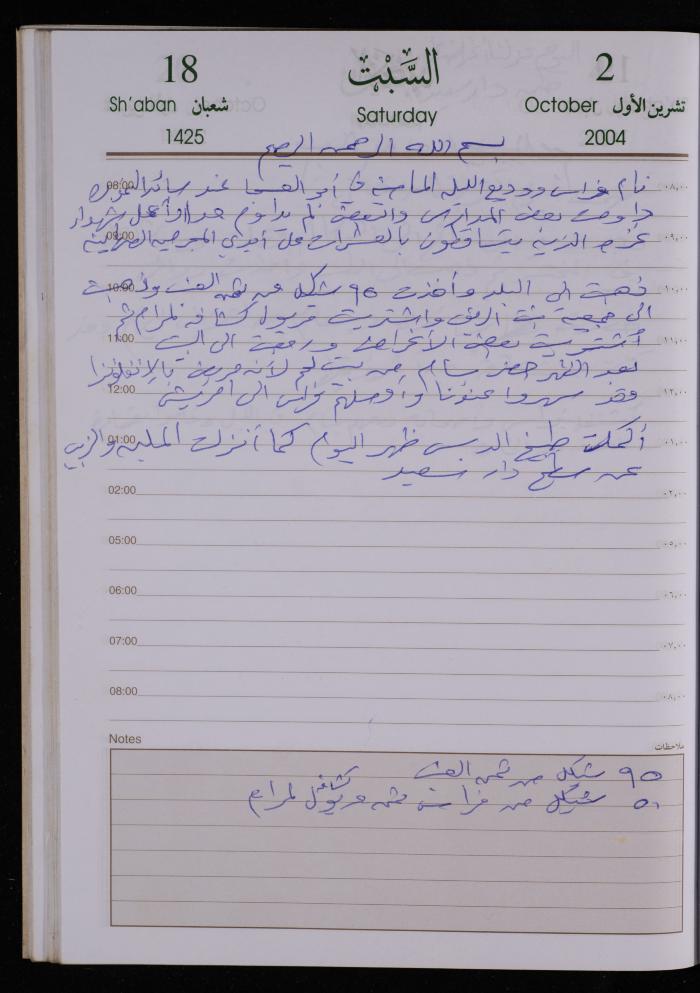 18 السَّبْت 2
Sh'aban شعبان Saturday October تشرين الأول
1425 2004
بسم الله الرحمن الرحيم
08:00 نام فراس ووديع الليلة الماضية في أبو عند سائد ٠٨,٠٠
داومت بعض المدارس والبعض لم يداوم حدادا على شهداء
09:00 غزة الذين يتساقطون بالعشرات على أيدي المجرمين الصهاينة ٠٩,٠٠
10:00 ذهبت الى البلد وأخذت ٩٥ شيكل من ثمن العنب وذهبت ١٠,٠٠
الى جمعية بيت الريش واشتريت كشافة لمرام ثم
11:00 اشتريت بعض الأغراض ورجعت الى البيت ١١,٠٠
بعد الظهر حضر بسام من بيت لحم لأنه مريض بالإنفلونزا
12:00 فقد سهروا عندنا وأوصلهم فراس الى افريتش ١٢,٠٠
01:00 أكملت طبخ الدبس ظهر اليوم كما أنزلت الملبن والزبيب ٠١,٠٠
عن سطح دار سعيد
02:00 ٠٢,٠٠
05:00 ٠٥,٠٠
06:00 ٠٦,٠٠
07:00 ٠٧,٠٠
08:00 ٠٨,٠٠
Notes ملاحظات
٩٥ شيكل من ثمن العنب
٥٠ شيكل من فراس ثمن كشافة لمرام